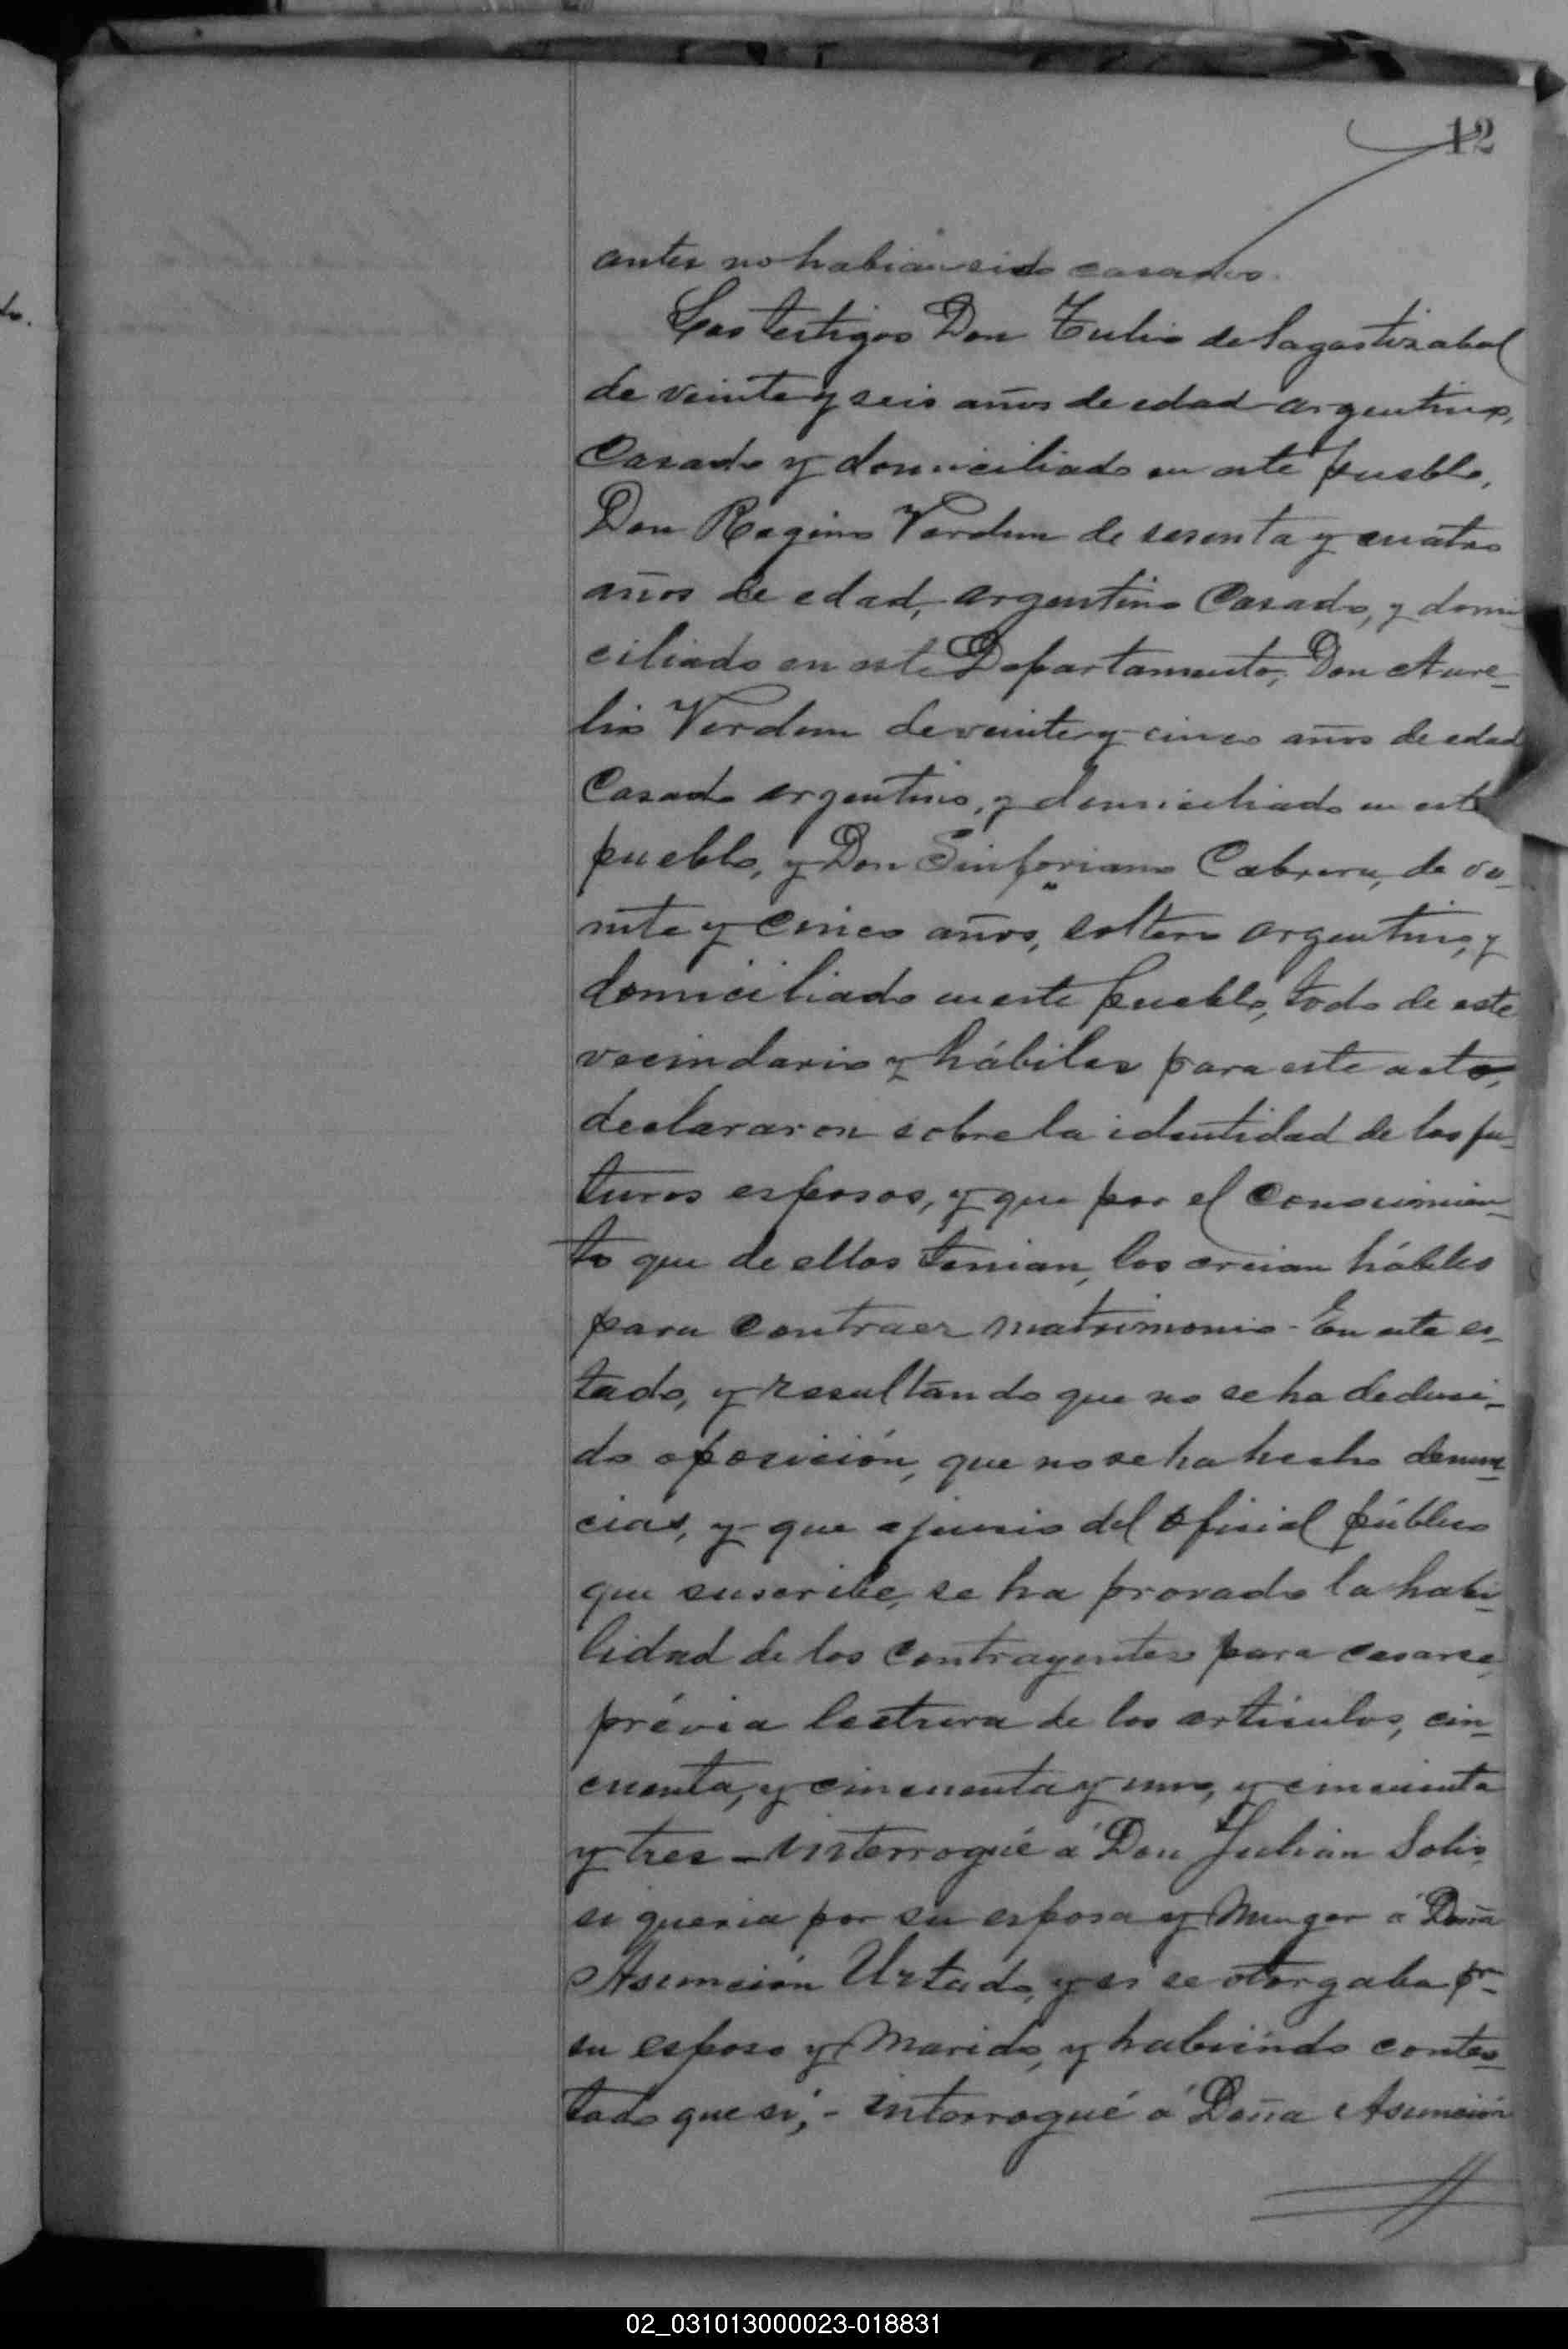 12
antes no habian sido casados.
Los testigos Don Tulio de Sagastizabal
de veinte y seis años de edad argentino,
Casado y domiciliado en este pueblo,
Don Regino Verdun de sesenta y cuatro
años de edad, argentino Casado, y domi-
ciliado en este Departamento, Don Aure-
lio Verdun de veinte y cinco años de edad
Casado argentino, y domiciliado en este
pueblo, y Don Sinforiano Cabrera, de ve-
inte y cinco años, soltero argentino, y
domiciliado en este pueblo, todo de este
vecindario y hábiles para este acto,
declararon sobre la identidad de los fu-
turos esposos, y que por el conocimien-
to que de ellos tenian, los creian hábiles
para contraer matrimonio - En este es-
tado, y resultando que no se ha deduci-
do oposición, que no se ha hecho denun-
cias, y que a juicio del oficial público
que suscribe, se ha provado la habi-
lidad de los contrayentes para casarse,
prévia lectura de los articulos, cin-
cuenta, y cincuenta y uno, y cincuenta
y tres - interrogué á Don Julian Solis
si queria por su esposa y Muger á Doña
Asunción Urtado, y si se otorgaba pr
su esposo y Marido, y habiendo contes-
tado que si, - interrogué á Doña Asunción
do.
02_031013000023-018831